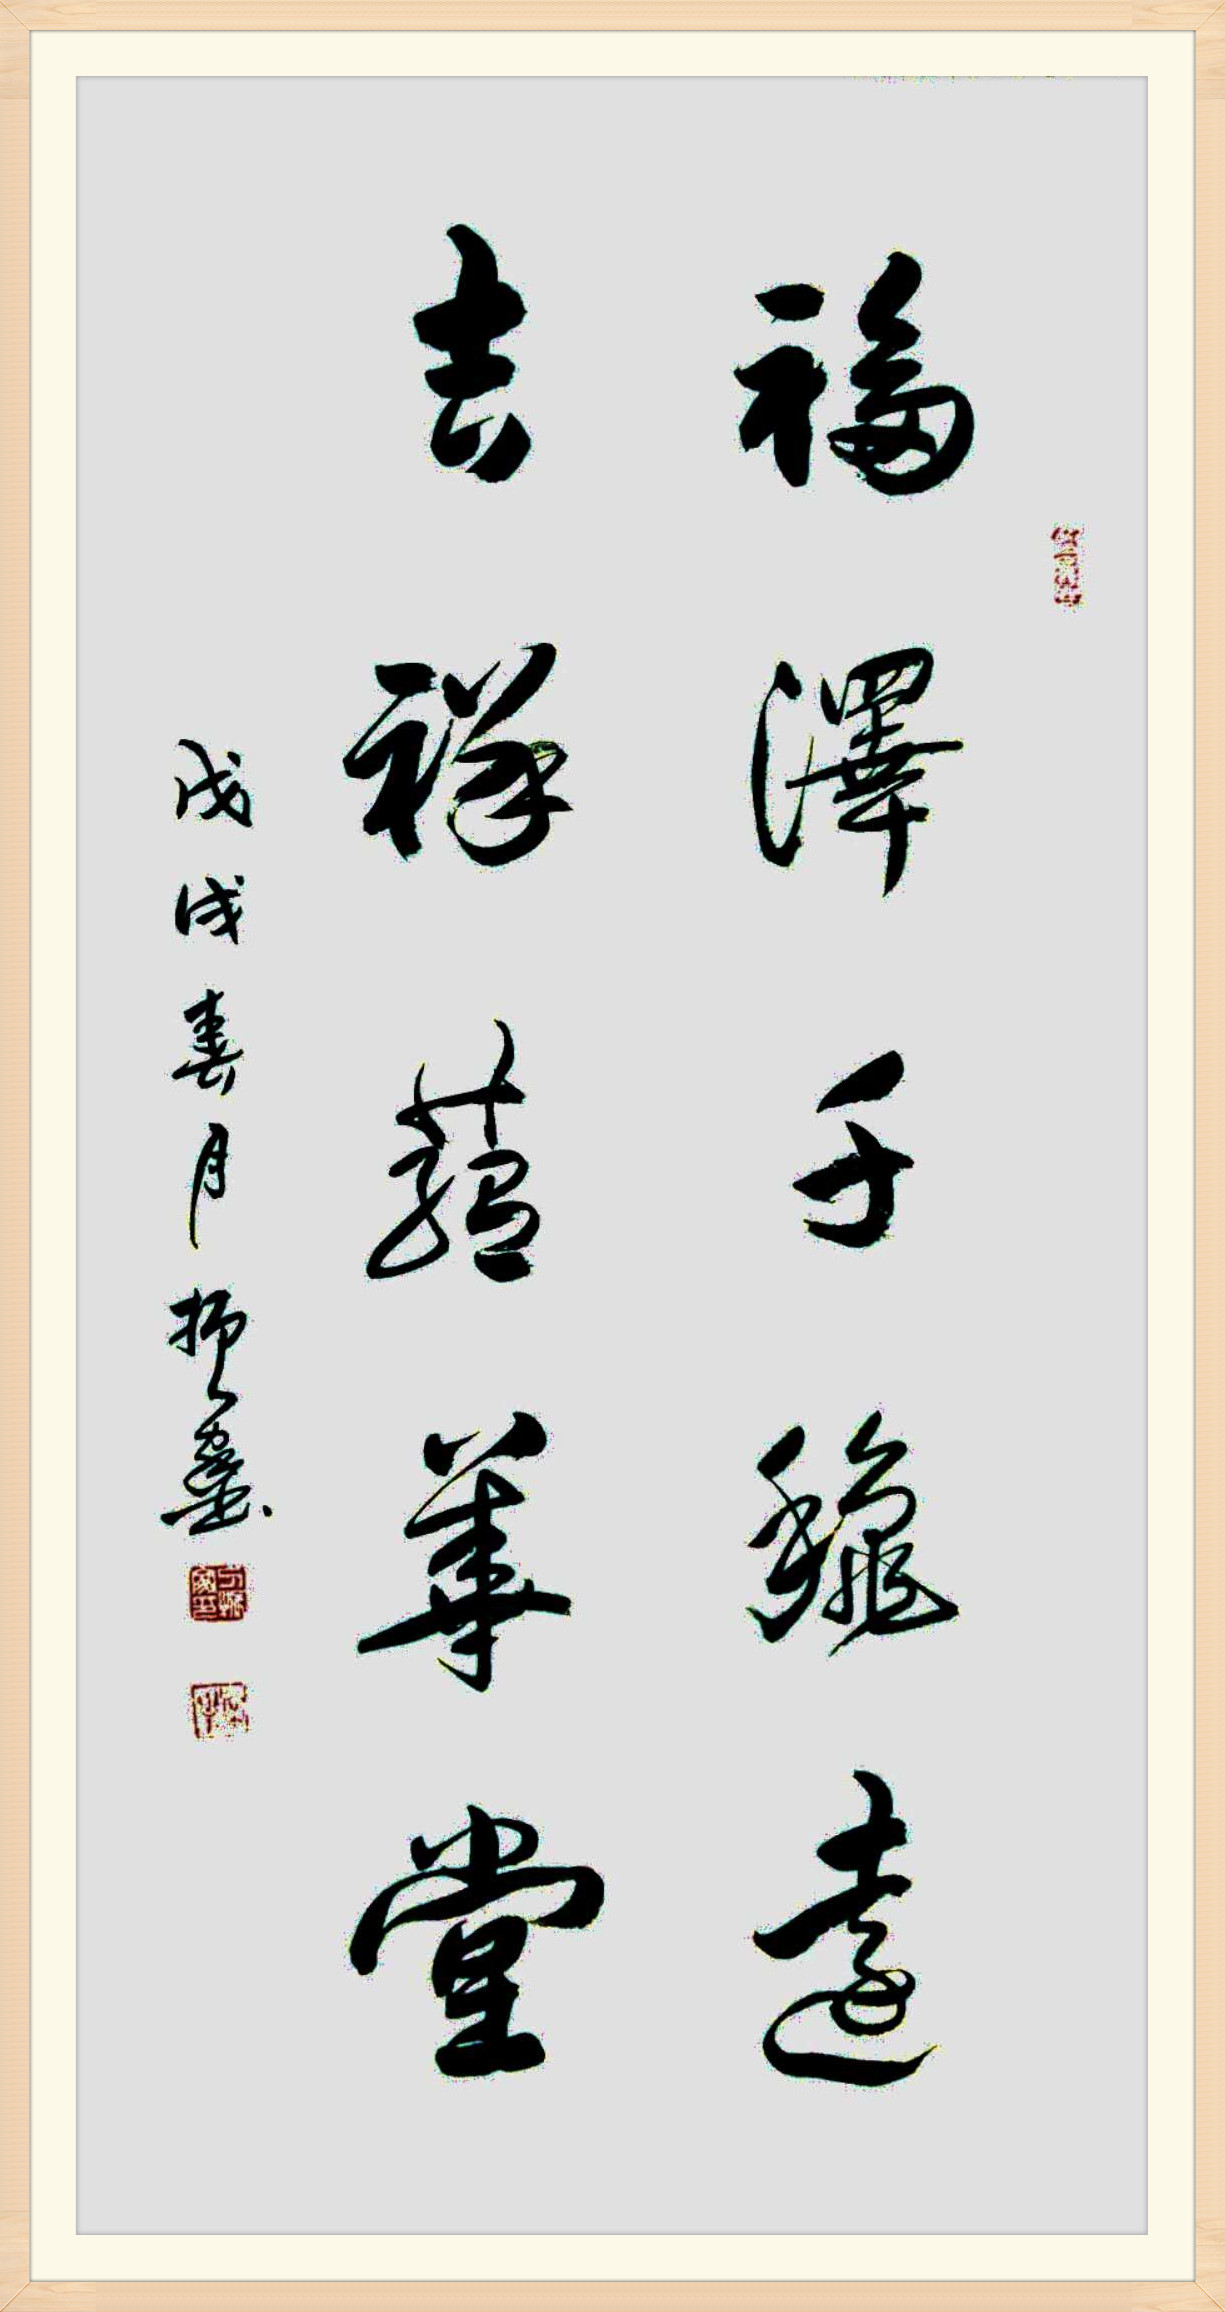 福澤千穐遠
吉祥蘊華堂
戊戌春月振